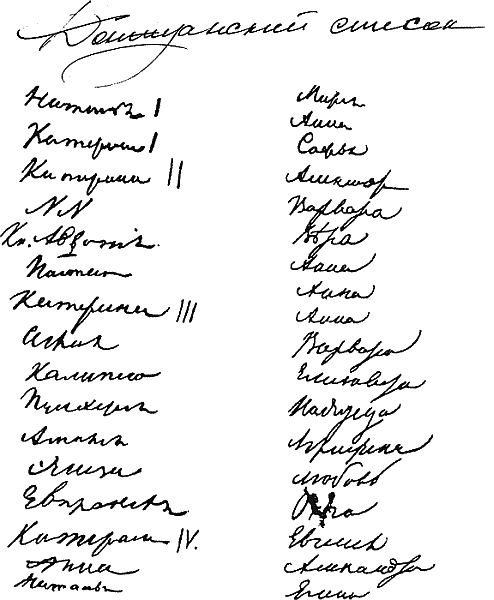 Донжуанский список
Наталья I
Катерина I
Катерина II
NN
Кн. Авдотія
Настасья
Катерина III
Аглая
Калипсо
Пулхерія
Амалія
Элиза
Евпраксея
Катерина IV.
Анна
Наталья
Марія
Анна
Софья
Александра
Варвара
Вѣра
Анна
Анна
Анна
Варвара
Елизавета
Надежда
Аграфена
Любовь
Ольга
Евгенія
Александра
Елена